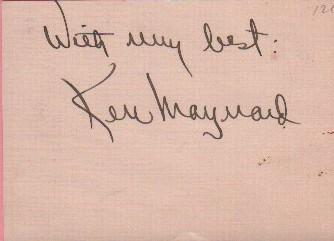 With my best:
Ken Maynard